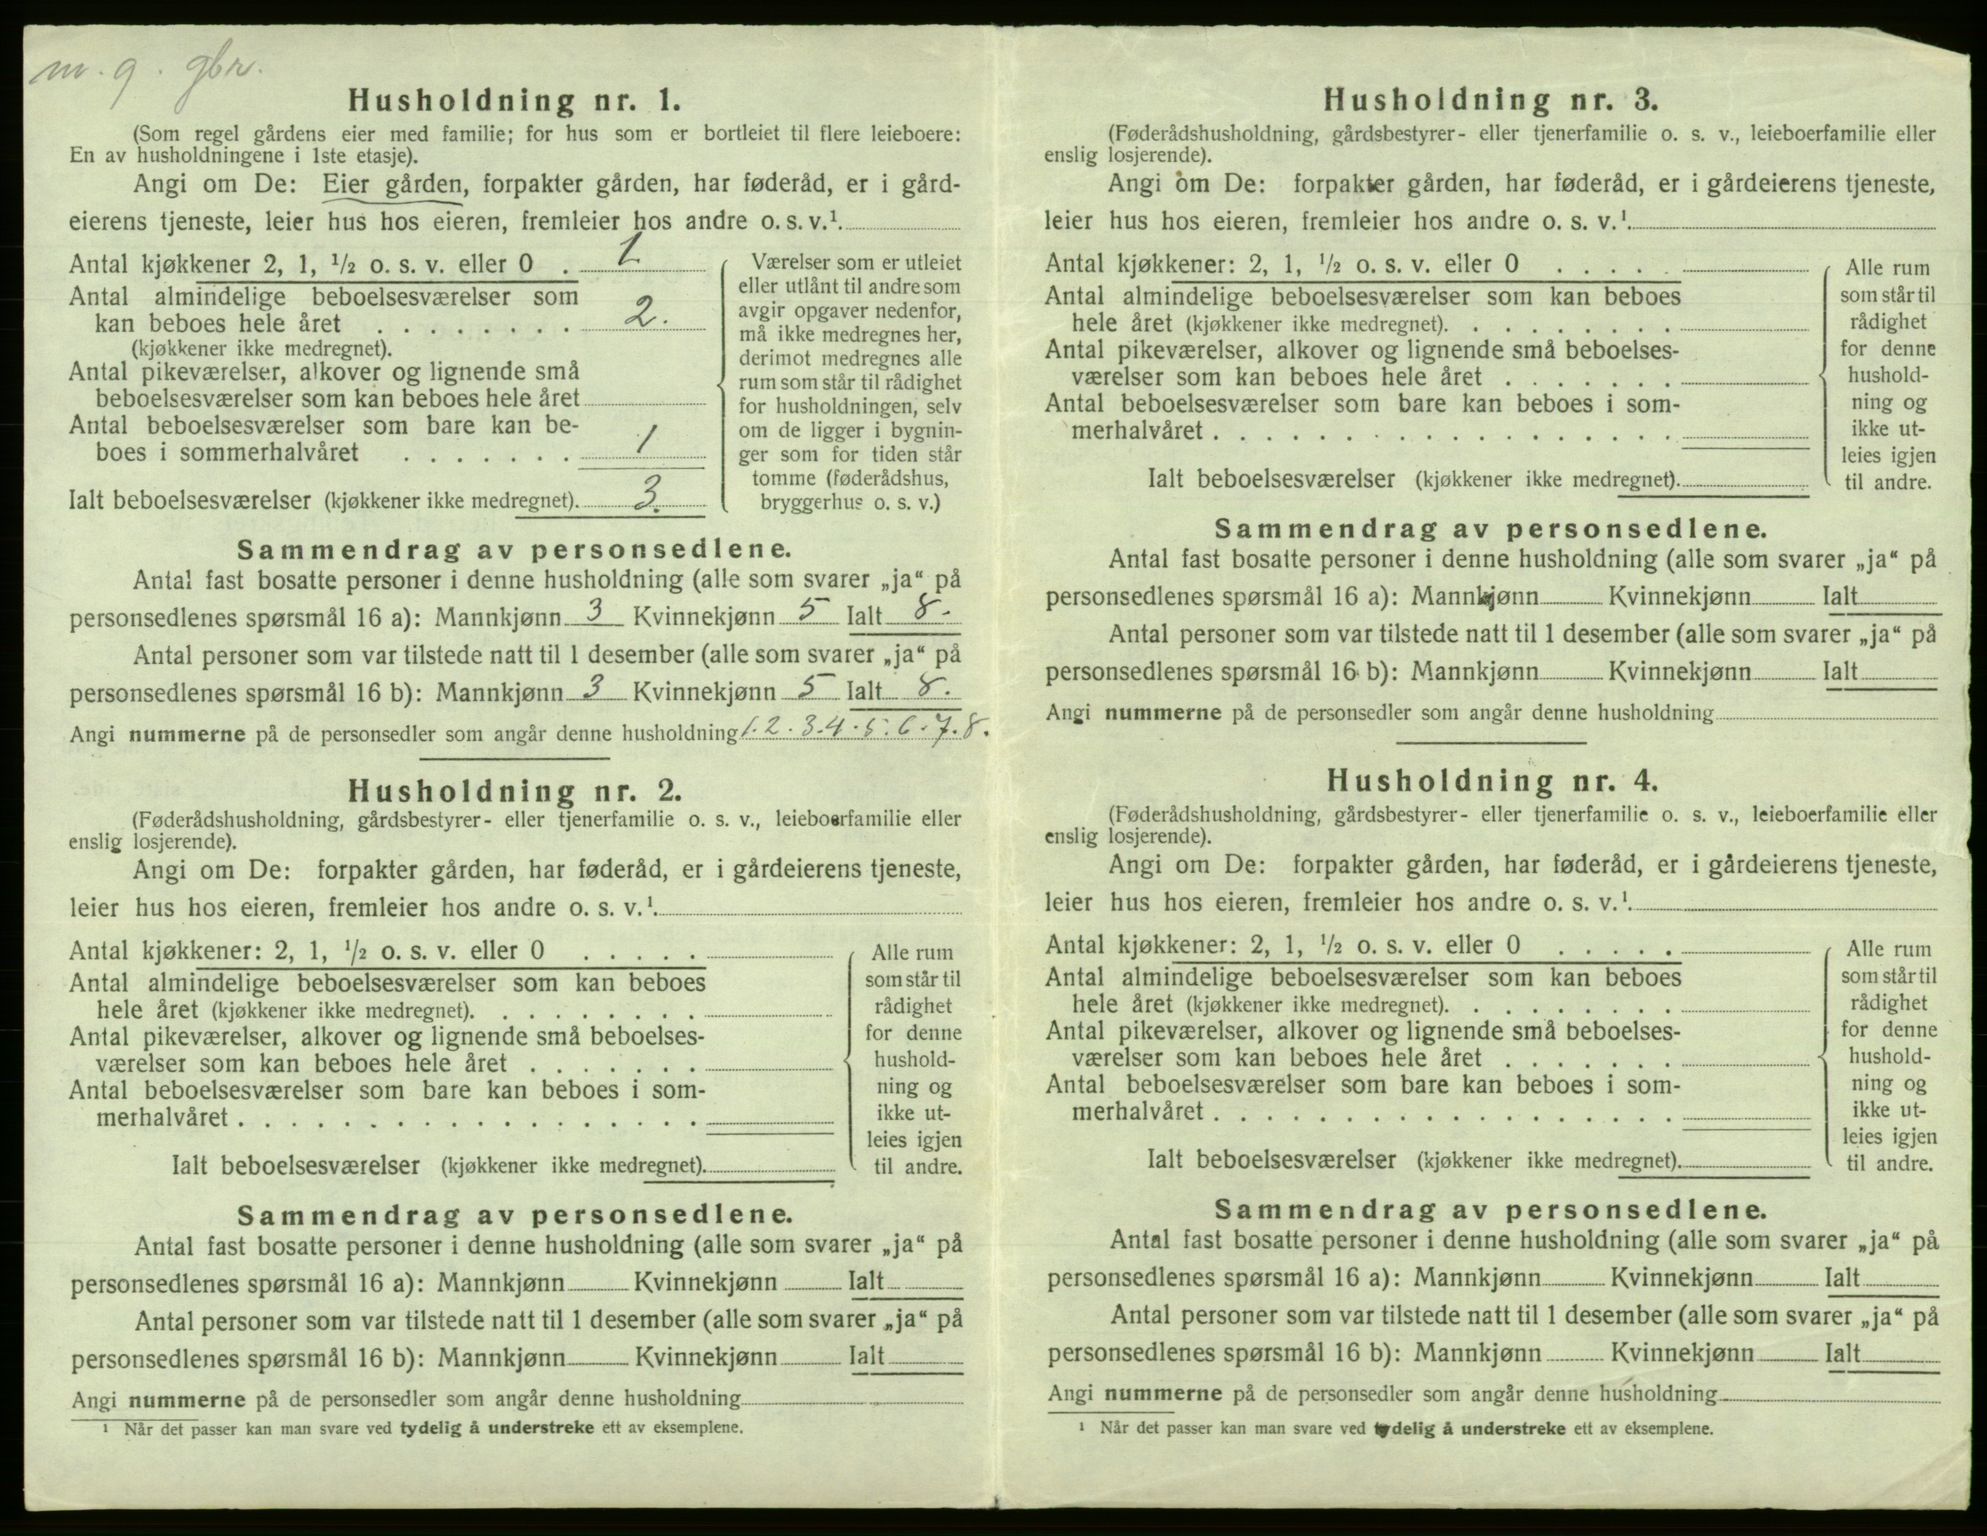 m. g. gbr.
Husholdning nr. 1.
(Som regel gårdens eier med familie; for hus som er bortleiet til flere leieboere:
En av husholdningene i 1ste etasje).
Angi om De: Eier gården, forpakter gården, har føderåd, er i gård-
eierens tjeneste, leier hus hos eieren, fremleier hos andre o. s. v.¹
Antal kjøkkener 2, 1, ½ o. s. v. eller 0 . 1
Antal almindelige beboelsesværelser som
kan beboes hele året . . . . . . . . 2.
(kjøkkener ikke medregnet).
Antal pikeværelser, alkover og lignende små
beboelsesværelser som kan beboes hele året
Antal beboelsesværelser som bare kan be-
boes i sommerhalvåret . . . . . . . 1
Ialt beboelsesværelser (kjøkkener ikke medregnet). 3.
Værelser som er utleiet
eller utlånt til andre som
avgir opgaver nedenfor,
må ikke medregnes her,
derimot medregnes alle
rum som står til rådighet
for husholdningen, selv
om de ligger i bygnin-
ger som for tiden står
tomme (føderådshus,
bryggerhus o. s. v.)
Sammendrag av personsedlene.
Antal fast bosatte personer i denne husholdning (alle som svarer „ja“ på
personsedlenes spørsmål 16 a): Mannkjønn 3 Kvinnekjønn 5 Ialt 8.
Antal personer som var tilstede natt til 1 desember (alle som svarer „ja“ på
personsedlenes spørsmål 16 b): Mannkjønn 3 Kvinnekjønn 5 Ialt 8.
Angi nummerne på de personsedler som angår denne husholdning 1.2.3.4.5.6.7.8.
Husholdning nr. 2.
(Føderådshusholdning, gårdsbestyrer- eller tjenerfamilie o. s. v., leieboerfamilie eller
enslig losjerende).
Angi om De: forpakter gården, har føderåd, er i gårdeierens tjeneste,
leier hus hos eieren, fremleier hos andre o. s. v.¹
Antal kjøkkener: 2, 1, ½ o. s. v. eller 0 . . . . .
Antal almindelige beboelsesværelser som kan beboes
hele året (kjøkkener ikke medregnet). . . . . . . . .
Antal pikeværelser, alkover og lignende små beboelses-
værelser som kan beboes hele året . . . . . . .
Antal beboelsesværelser som bare kan beboes i som-
merhalvåret . . . . . . . . . . . . . . . . . .
Ialt beboelsesværelser (kjøkkener ikke medregnet).
Alle rum
som står til
rådighet
for denne
hushold-
ning og
ikke ut-
leies igjen
til andre.
Sammendrag av personsedlene.
Antal fast bosatte personer i denne husholdning (alle som svarer „ja“ på
personsedlenes spørsmål 16 a): Mannkjønn Kvinnekjønn Ialt
Antal personer som var tilstede natt til 1 desember (alle som svarer „ja“ på
personsedlenes spørsmål 16 b): Mannkjønn Kvinnekjønn Ialt
Angi nummerne på de personsedler som angår denne husholdning
¹ Når det passer kan man svare ved tydelig å understreke ett av eksemplene.
Husholdning nr. 3.
(Føderådshusholdning, gårdsbestyrer- eller tjenerfamilie o. s. v., leieboerfamilie eller
enslig losjerende).
Angi om De: forpakter gården, har føderåd, er i gårdeierens tjeneste,
leier hus hos eieren, fremleier hos andre o. s. v.¹
Antal kjøkkener: 2, 1, ½ o. s. v. eller 0 . . . . .
Antal almindelige beboelsesværelser som kan beboes
hele året (kjøkkener ikke medregnet). . . . . . . . .
Antal pikeværelser, alkover og lignende små beboelses-
værelser som kan beboes hele året . . . . . . .
Antal beboelsesværelser som bare kan beboes i som-
merhalvåret . . . . . . . . . . . . . . . . . .
Ialt beboelsesværelser (kjøkkener ikke medregnet).
Alle rum
som står til
rådighet
for denne
hushold-
ning og
ikke ut-
leies igjen
til andre.
Sammendrag av personsedlene.
Antal fast bosatte personer i denne husholdning (alle som svarer „ja“ på
personsedlenes spørsmål 16 a): Mannkjønn Kvinnekjønn Ialt
Antal personer som var tilstede natt til 1 desember (alle som svarer „ja“ på
personsedlenes spørsmål 16 b): Mannkjønn Kvinnekjønn Ialt
Angi nummerne på de personsedler som angår denne husholdning
Husholdning nr. 4.
(Føderådshusholdning, gårdsbestyrer- eller tjenerfamilie o. s. v., leieboerfamilie eller
enslig losjerende).
Angi om De: forpakter gården, har føderåd, er i gårdeierens tjeneste,
leier hus hos eieren, fremleier hos andre o. s. v.¹
Antal kjøkkener: 2, 1, ½ o. s. v. eller 0 . . . . .
Antal almindelige beboelsesværelser som kan beboes
hele året (kjøkkener ikke medregnet). . . . . . . . .
Antal pikeværelser, alkover og lignende små beboelses-
værelser som kan beboes hele året . . . . . . .
Antal beboelsesværelser som bare kan beboes i som-
merhalvåret . . . . . . . . . . . . . . . . . .
Ialt beboelsesværelser (kjøkkener ikke medregnet).
Alle rum
som står til
rådighet
for denne
hushold-
ning og
ikke ut-
leies igjen
til andre.
Sammendrag av personsedlene.
Antal fast bosatte personer i denne husholdning (alle som svarer „ja“ på
personsedlenes spørsmål 16 a): Mannkjønn Kvinnekjønn Ialt
Antal personer som var tilstede natt til 1 desember (alle som svarer „ja“ på
personsedlenes spørsmål 16 b): Mannkjønn Kvinnekjønn Ialt
Angi nummerne på de personsedler som angår denne husholdning
¹ Når det passer kan man svare ved tydelig å understreke ett av eksemplene.